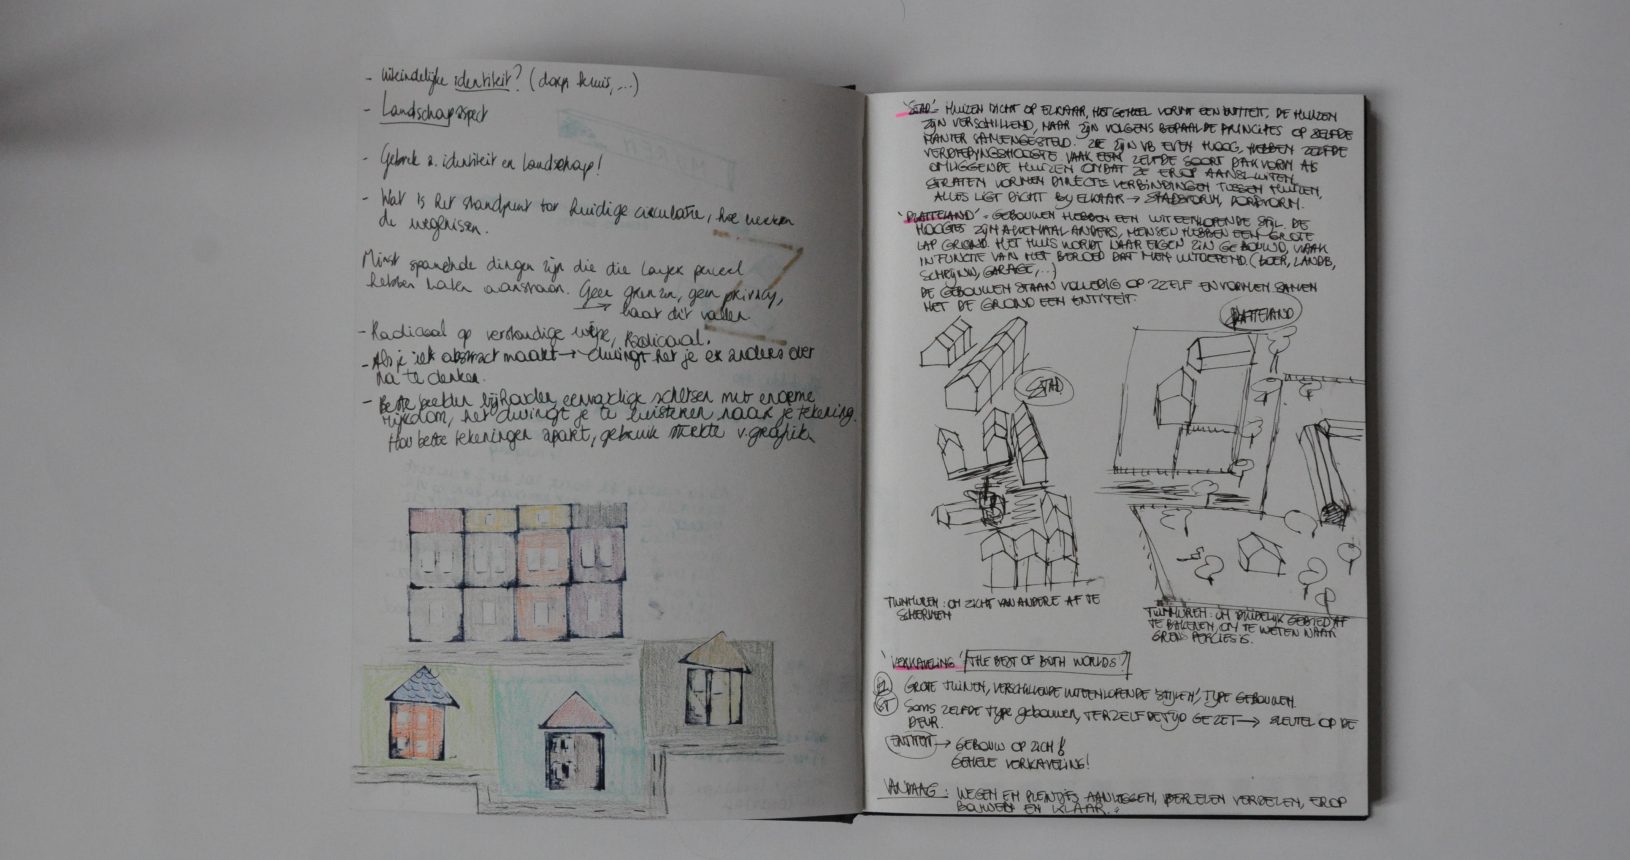 - Uiteindelijke identiteit? (dorp, huis, ...)
- Landschapaspect
- Gebrek a. identiteit en landschap!
- Wat is het standpunt tov huidige circulatie, hoe werken
de wegenissen.
Minst spannende dingen zijn die die lager perceel
hebben laten aanstaan. Geen grenzen, geen privacy,
laat dit vallen.
- Radicaal op verstandige wijze, Radicaal.
- Als je iets abstract maakt → dwingt het je er anders over
na te denken.
- Beste beelden bijhouden, eenvoudige schetsen met enorme
rijkdom, het dwingt je te luisteren naar je tekening.
Hou beste tekeningen apart, gebruik sterkte v. grafiek
'STAD' HUIZEN DICHT OP ELKAAR, HET GEHEEL VORMT EEN ENTITEIT. DE HUIZEN
ZIJN VERSCHILLEND, MAAR ZIJN VOLGENS BEPAALDE PRINCIPES OP ZELFDE
MANIER SAMENGESTELD. ZE ZIJN VB EVEN HOOG, HEBBEN ZELFDE
VERDIEPINGSHOOGTE VAAK EEN ZELFDE SOORT DAKVORM ALS
OMLIGGENDE HUIZEN OMDAT ZE EROP AANSLUITEN.
STRATEN VORMEN DIRECTE VERBINDINGEN TUSSEN HUIZEN,
ALLES LIGT DICHT BIJ ELKAAR → STADSVORM, DORPSVORM.
'PLATTELAND' - GEBOUWEN HEBBEN EEN UITEENLOPENDE STIJL. DE
HOOGTES ZIJN ALLEMAAL ANDERS, MENSEN HEBBEN EEN GROTE
LAP GROND. HET HUIS WORDT NAAR EIGEN ZIN GEBOUWD, VAAK
IN FUNCTIE VAN HET BEROEP DAT MEN UITOEFEND. (BOER, LANDB,
SCHRIJNW, GARAGE, ...)
DE GEBOUWEN STAAN VOLLEDIG OP ZZELF EN VORMEN SAMEN
MET DE GROND EEN ENTITEIT.
PLATTELAND
STAD
TUINMUREN: OM ZICHT VAN ANDERE AF TE
SCHERMEN
TUINMUREN: OM DUIDELIJK GEBIED AF
TE BAKENEN, OM TE WETEN WAAR
GRENS PERCEEL IS.
'VERKAVELING' THE BEST OF BOTH WORLDS?
GROTE TUINEN, VERSCHILLENDE UITEENLOPENDE 'STIJLEN', TYPE GEBOUWEN.
ST Soms ZELFDE TYPE gebouwen, TERZELFDETIJD GEZET → SLEUTEL OP DE
DEUR.
ENTITEIT → GEBOUW OP ZICH!
GEHELE VERKAVELING!
VANDAAG: WEGEN EN PLEINTJES AANLEGGEN, PERCELEN VERDELEN, EROP
BOUWEN EN KLAAR.